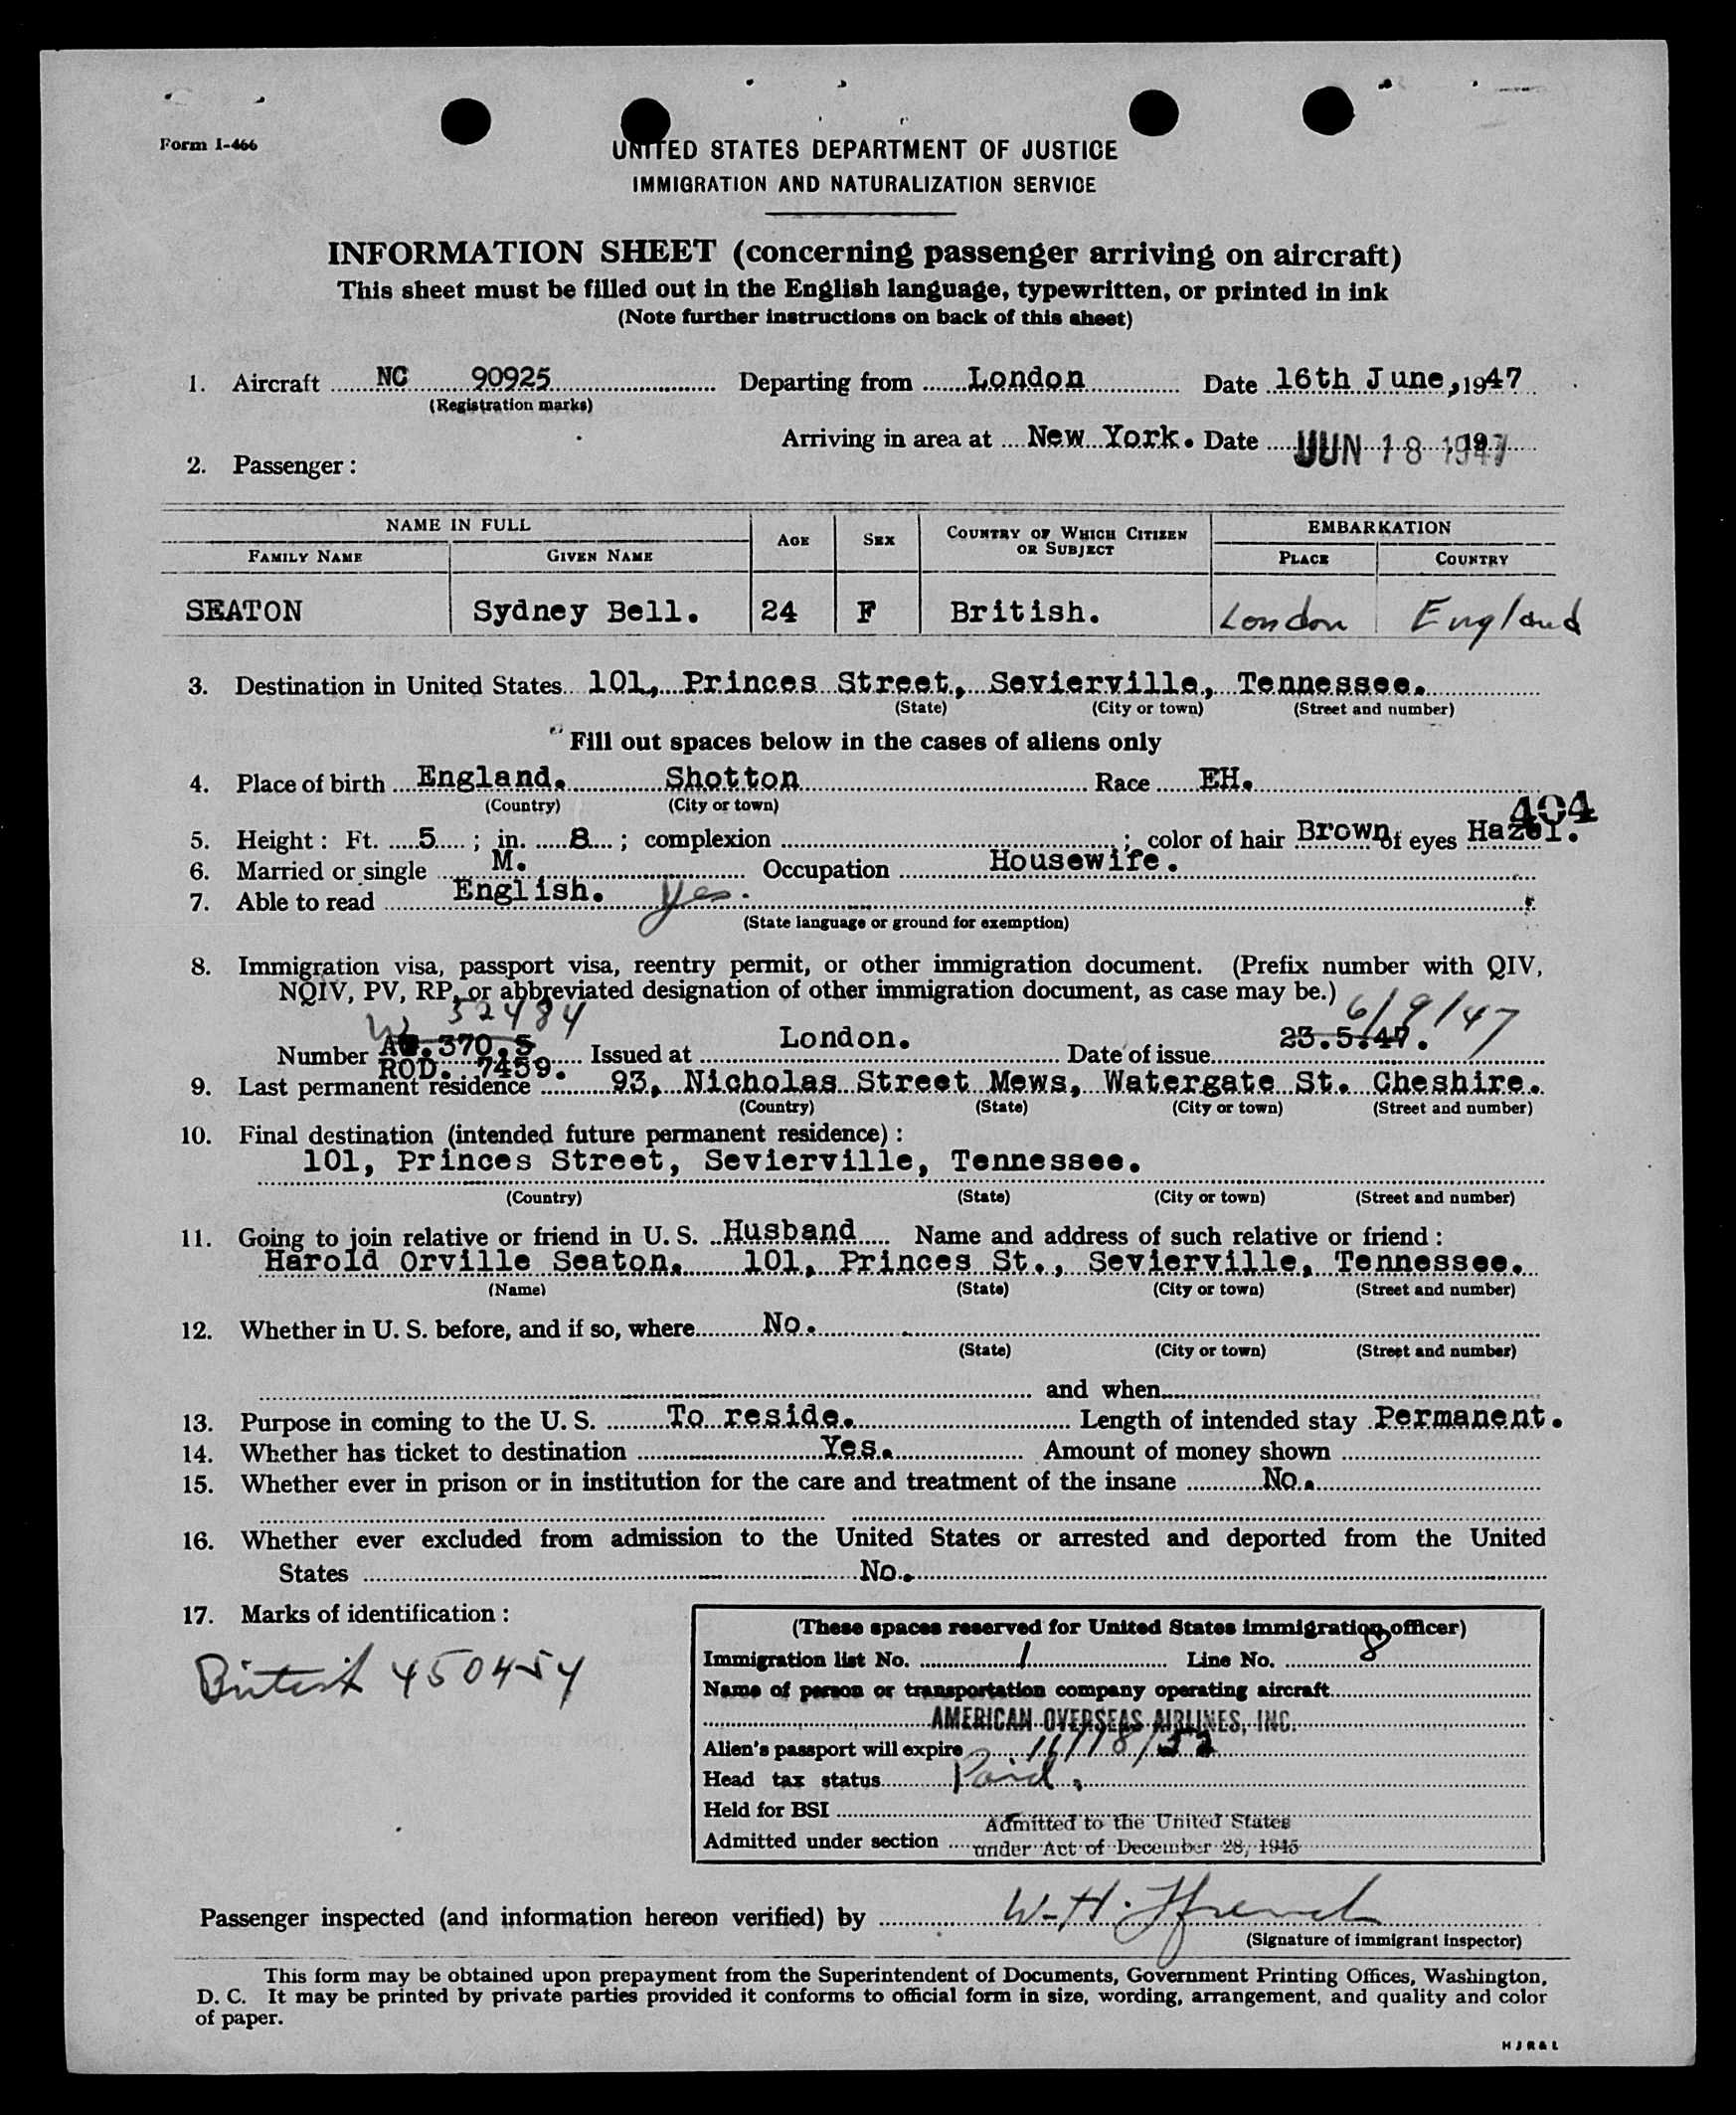 Form I-466
UNITED STATES DEPARTMENT OF JUSTICE
IMMIGRATION AND NATURALIZATION SERVICE
INFORMATION SHEET (concerning passenger arriving on aircraft)
This sheet must be filled out in the English language, typewritten, or printed in ink
(Note further instructions on back of this sheet)
1. Aircraft NC 90925 Departing from London Date 16th June, 1947
(Registration marks)
Arriving in area at New York. Date JUN 18 1947
2. Passenger:
NAME IN FULL AGE SEX COUNTRY OF WHICH CITIZEN OR SUBJECT EMBARKATION
FAMILY NAME GIVEN NAME PLACE COUNTRY
SEATON Sydney Bell. 24 F British. London England
3. Destination in United States 101, Princes Street, Sevierville, Tennessee.
(State) (City or town) (Street and number)
Fill out spaces below in the cases of aliens only
4. Place of birth England. Shotton Race EH.
(Country) (City or town)
404
5. Height: Ft. 5 ; in. 8 ; complexion ; color of hair Brown of eyes Hazel.
6. Married or single M. Occupation Housewife.
7. Able to read English. Yes.
(State language or ground for exemption)
8. Immigration visa, passport visa, reentry permit, or other immigration document. (Prefix number with QIV,
NQIV, PV, RP, or abbreviated designation of other immigration document, as case may be.)
52484 6/9/47
Number 370.5 Issued at London. Date of issue 23.5.47.
ROD. 7459.
9. Last permanent residence 93, Nicholas Street Mews, Watergate St. Cheshire.
(Country) (State) (City or town) (Street and number)
10. Final destination (intended future permanent residence):
101, Princes Street, Sevierville, Tennessee.
(Country) (State) (City or town) (Street and number)
11. Going to join relative or friend in U. S. Husband Name and address of such relative or friend:
Harold Orville Seaton. 101, Princes St., Sevierville, Tennessee.
(Name) (State) (City or town) (Street and number)
12. Whether in U. S. before, and if so, where No.
(State) (City or town) (Street and number)
and when
13. Purpose in coming to the U. S. To reside. Length of intended stay Permanent.
14. Whether has ticket to destination Yes. Amount of money shown
15. Whether ever in prison or in institution for the care and treatment of the insane No.
16. Whether ever excluded from admission to the United States or arrested and deported from the United
States No.
17. Marks of identification:
British 450454
(These spaces reserved for United States immigration officer)
Immigration list No. 1 Line No. 8
Name of person or transportation company operating aircraft
AMERICAN OVERSEAS AIRLINES, INC.
Alien's passport will expire 11/18/52
Head tax status Paid.
Held for BSI
Admitted to the United States
Admitted under section under Act of December 28, 1945
Passenger inspected (and information hereon verified) by W. H. Ffrench
(Signature of immigrant inspector)
This form may be obtained upon prepayment from the Superintendent of Documents, Government Printing Offices, Washington,
D. C. It may be printed by private parties provided it conforms to official form in size, wording, arrangement, and quality and color
of paper.
H J R & L